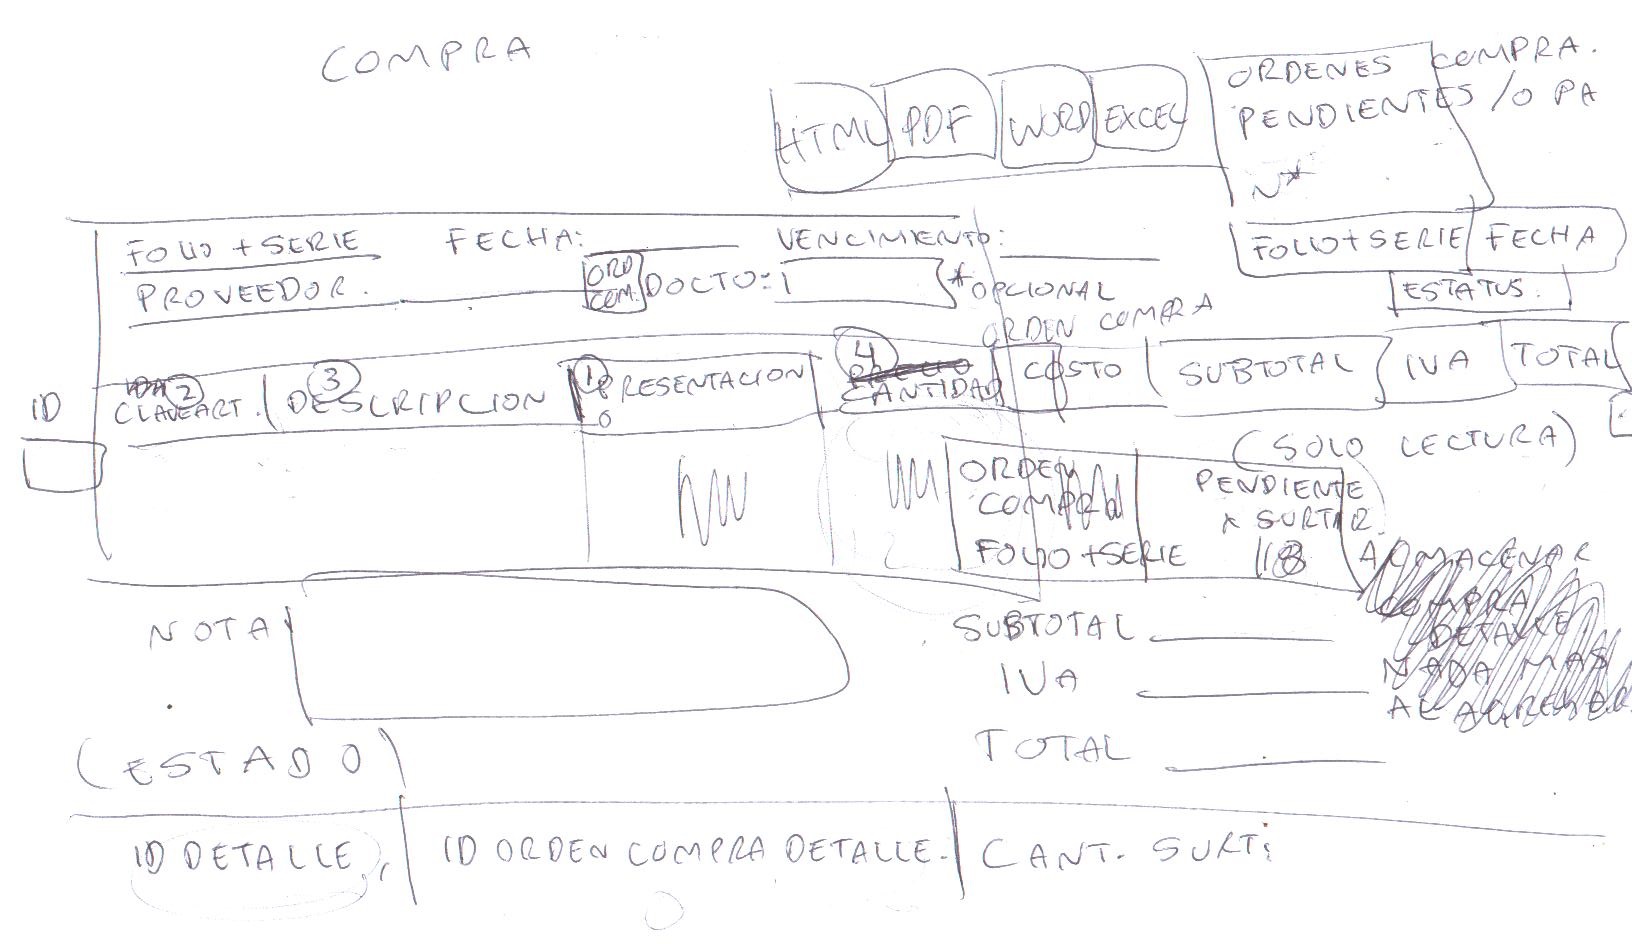 COMPRA
HTML PDF WORD EXCEL
ORDENES COMPRA.
PENDIENTES /O PA
N*
FOLIO + SERIE FECHA
ESTATUS.
FOLIO + SERIE FECHA: VENCIMIENTO:
PROVEEDOR. ORD COM. DOCTO: * OPCIONAL
ORDEN COMPRA
ID 2 CLAVEART. 3 DESCRIPCION 1 PRESENTACION 4 CANTIDAD COSTO SUBTOTAL IVA TOTAL
(SOLO LECTURA)
ORDEN COMPRA PENDIENTE X SURTIR
FOLIO + SERIE
ALMACENAR
COMPRA
DETALLE
NADA MAS
AL
NOTA
SUBTOTAL
IVA
TOTAL
(ESTADO)
ID DETALLE, ID ORDEN COMPRA DETALLE. CANT. SURTi